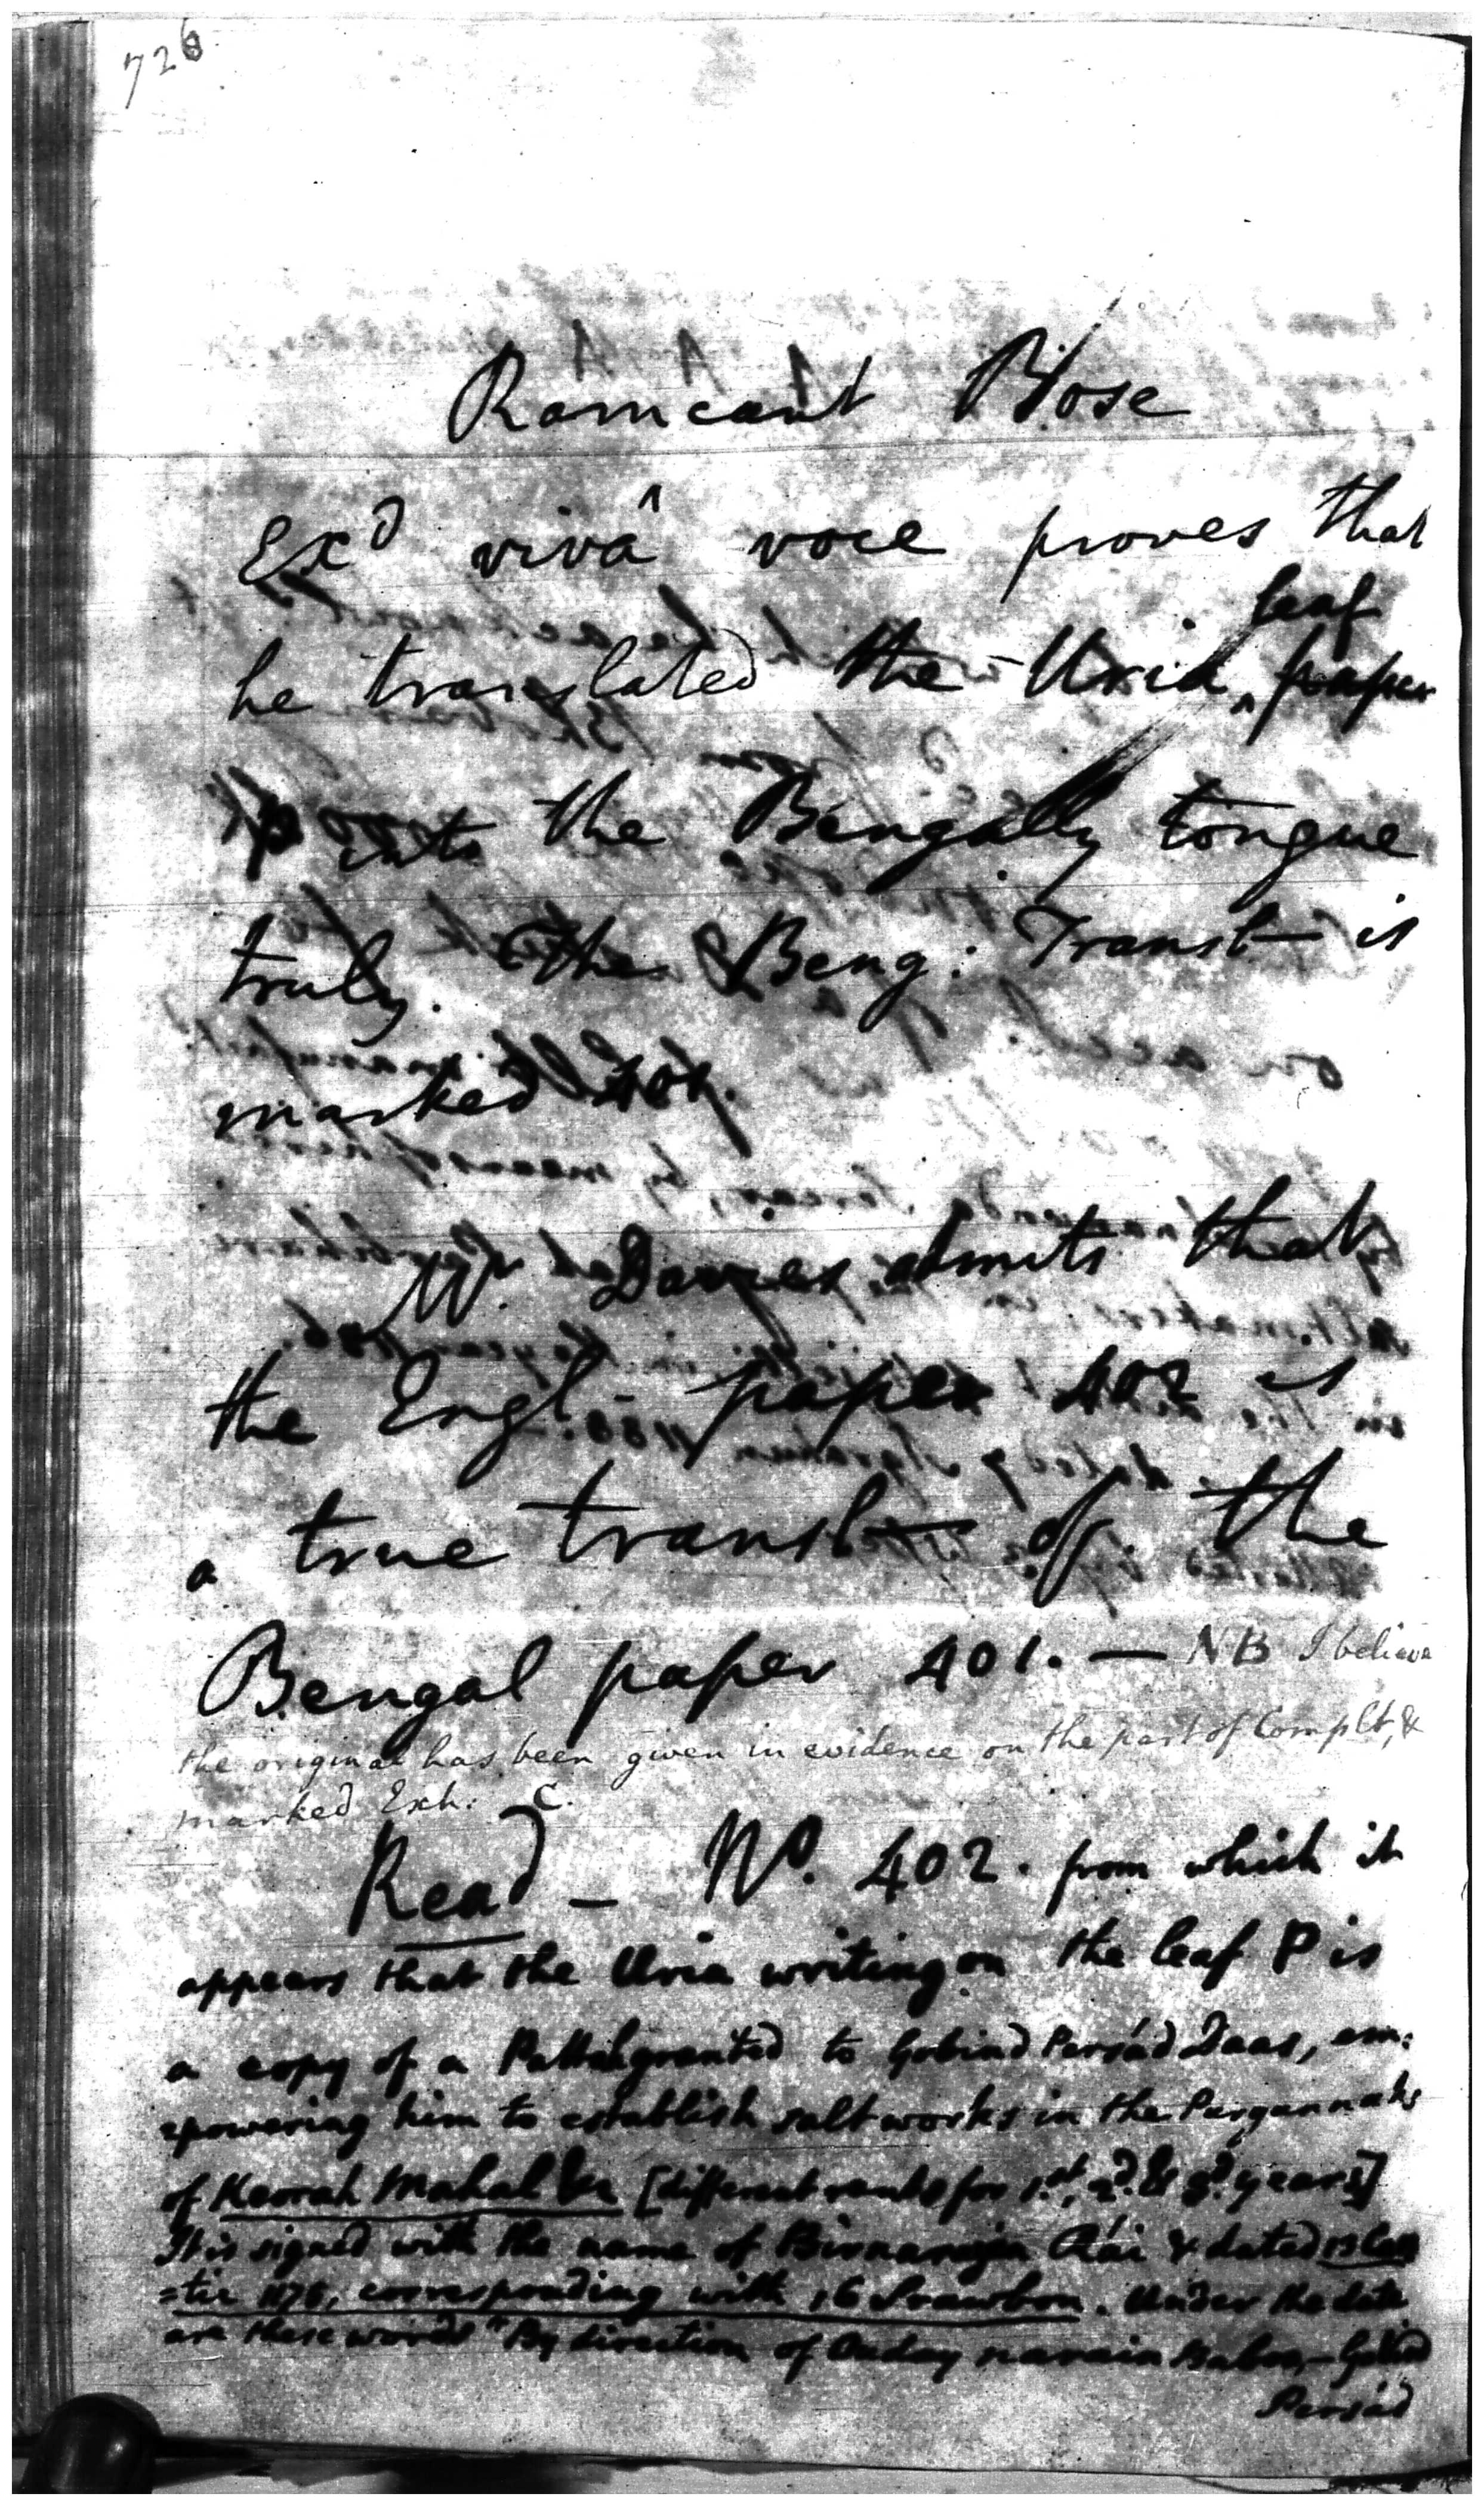 726
Ramcant Bose
Exd vivâ voce proves that
leaf
he translated the Uria ^ paper
into the Bengally tongue
truly. The Beng: Transl- is
marked 401.
Mr Davies admits that
the Engl- paper 402 is
a true transl- of the
Bengal paper 401. — NB I believe
the original has been given in evidence on the part of Complt, &
marked Exh: C.
Read — No. 402. from which it
appears that the Uria writing on the leaf P is
a copy of a Pattah granted to Gobind Persád Daas, em:
powering him to establish salt works in the Pargannahs
of Keorah Mahal &c [different rents for 1st, 2d & 3d years]
It is signed with the name of Birnarajan Rái & dated 13
1178, corresponding with 16 Srawbon. Under the date
are these words "By direction of Ouday narain Baboo, – Gobind
Persád